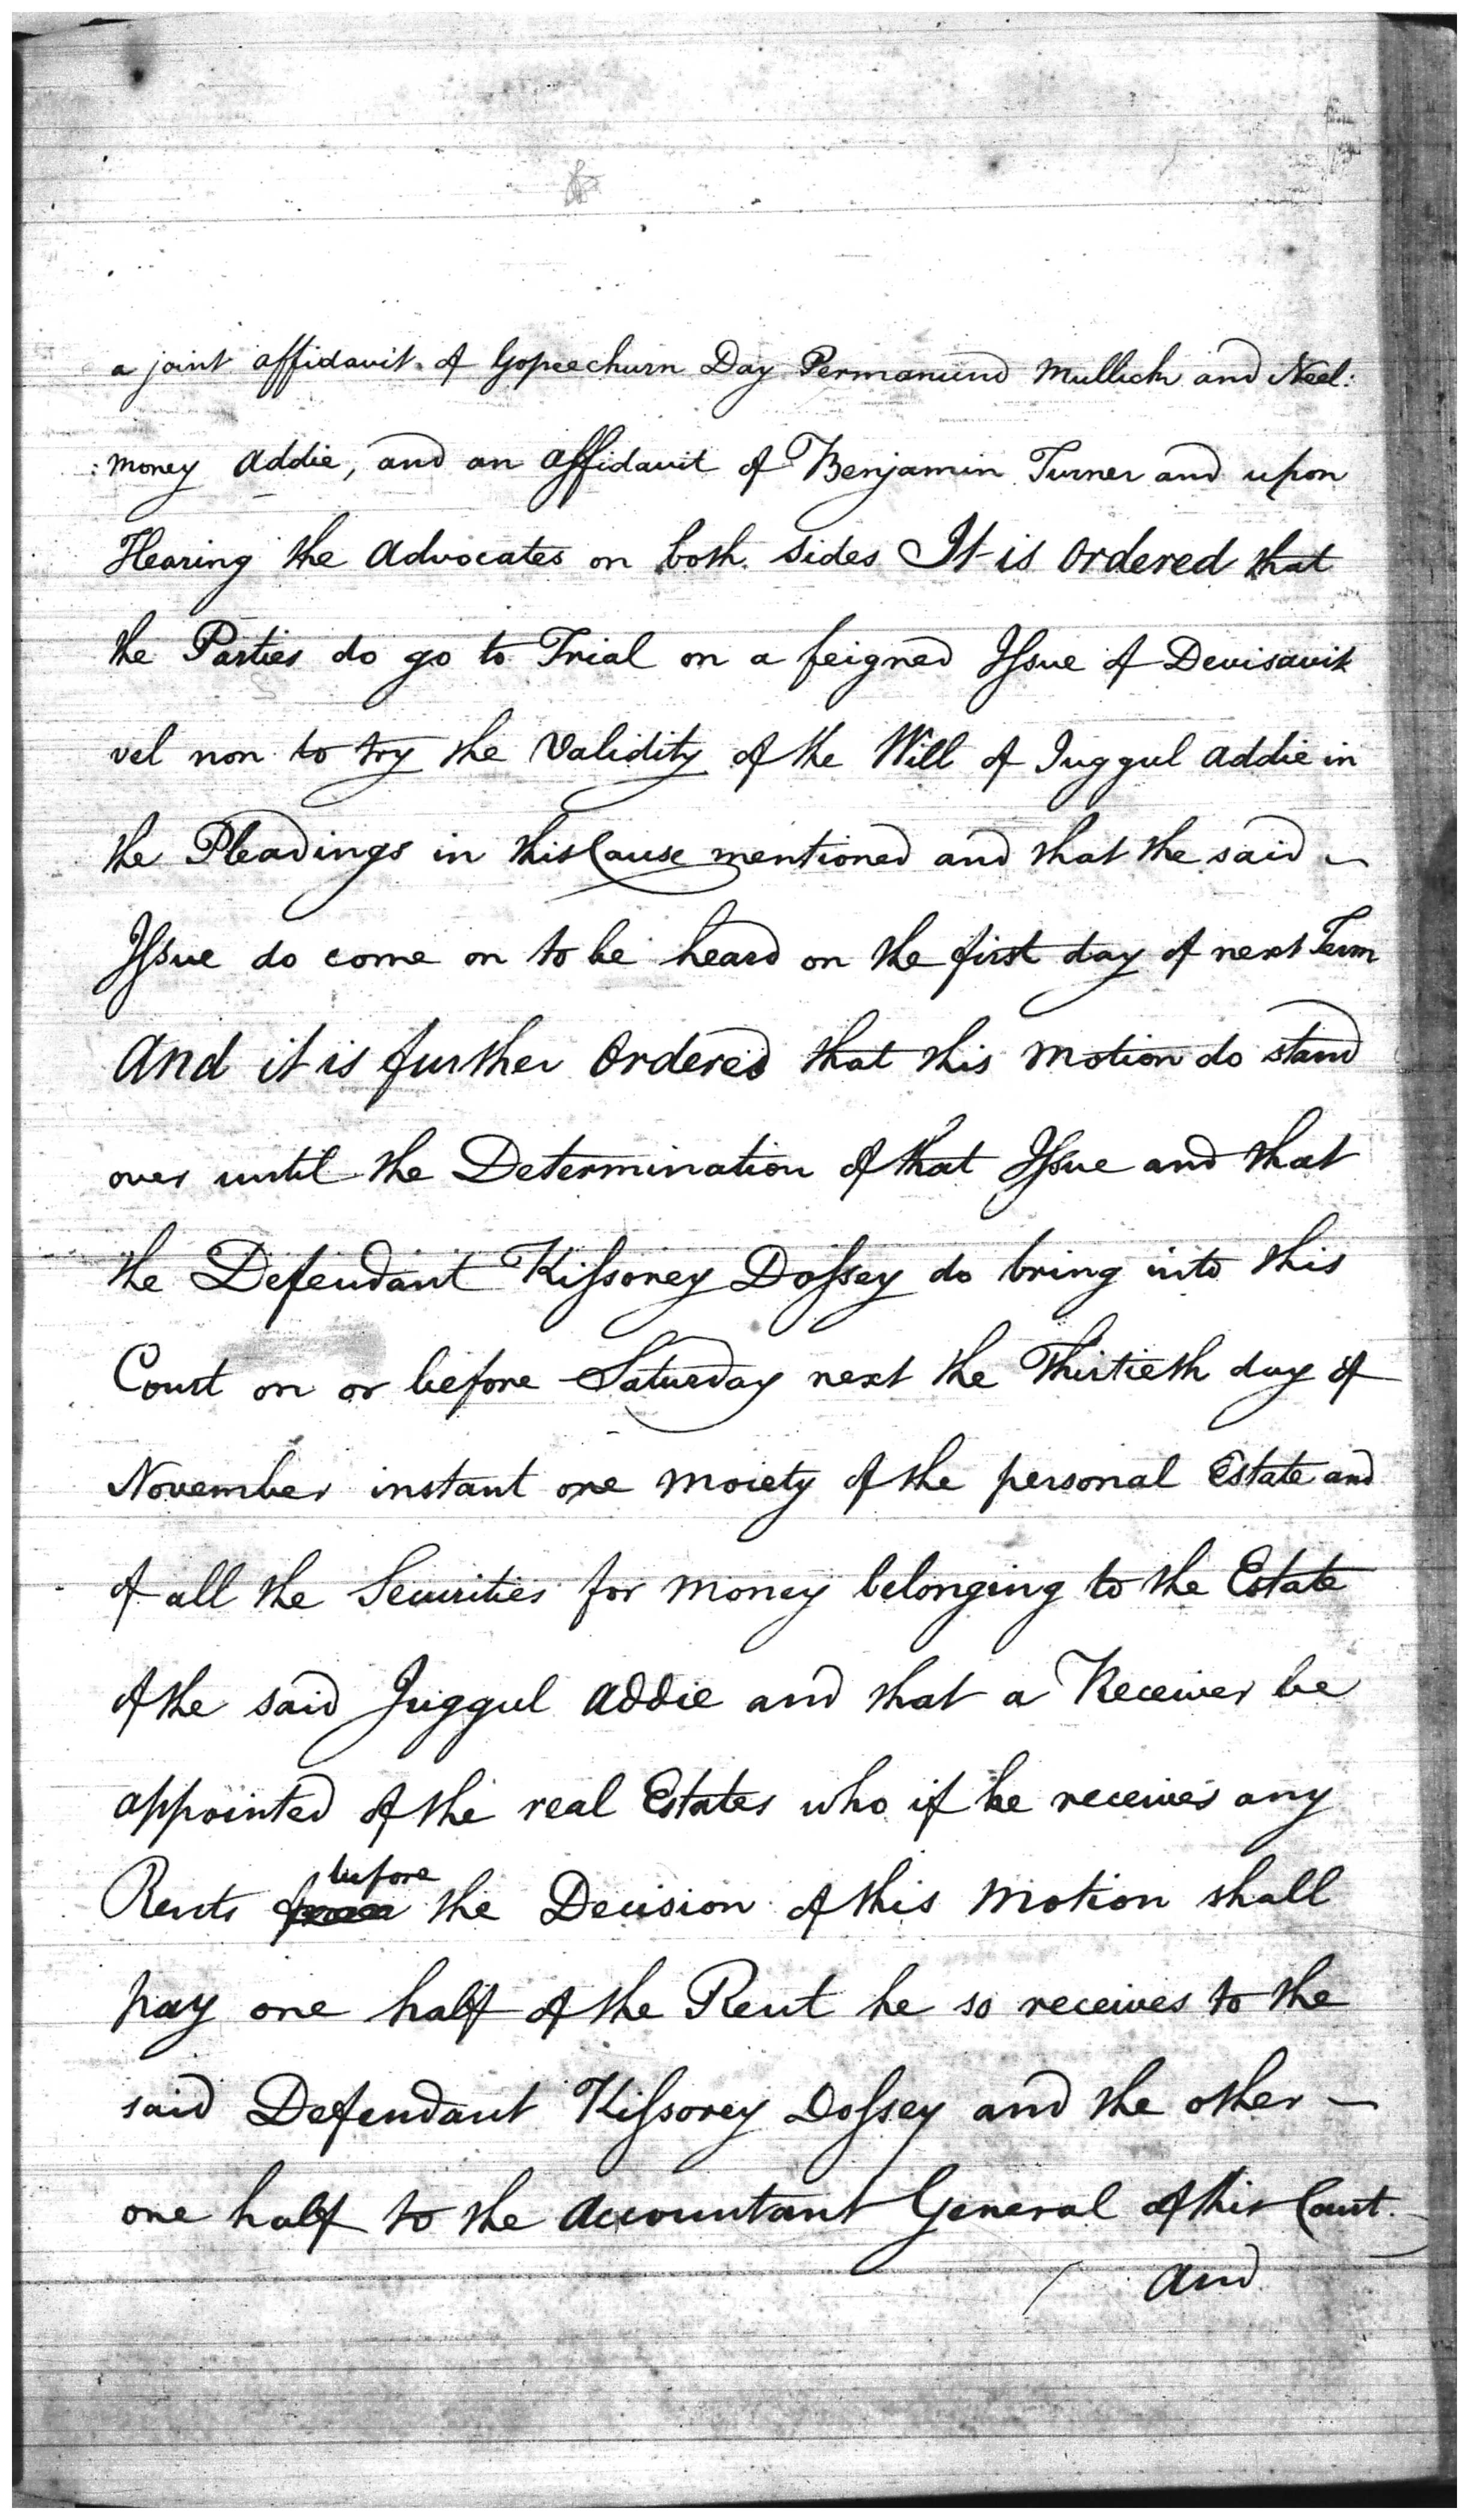 a joint affidavit of Gopeechurn Day Permanund Mullick and Neel:
:money Addie, and an affidavit of Benjamin Turner and upon
Hearing the Advocates on both sides It is Ordered that
the Parties do go to Trial on a feigned Issue of Devisavit
vel non to try the Validity of the Will of Juggul Addie in
the Pleadings in this Cause mentioned and that the said
Issue do come on to be heard on the first day of next Term
And it is further Ordered that this Motion do stand
over until the Determination of that Issue and that
the Defendant Kissorey Dossey do bring into this
Court on or before Saturday next the Thirtieth day of
November instant one Moiety of the personal Estate and
of all the Securities for Money belonging to the Estate
of the said Juggul Addie and that a Receiver be
appointed of the real Estates who if he receives any
before
Rents the Decision of this Motion shall
pay one half of the Rent he so receives to the
said Defendant Kissorey Dossey and the other
one half to the Accountant General of this Court.
And